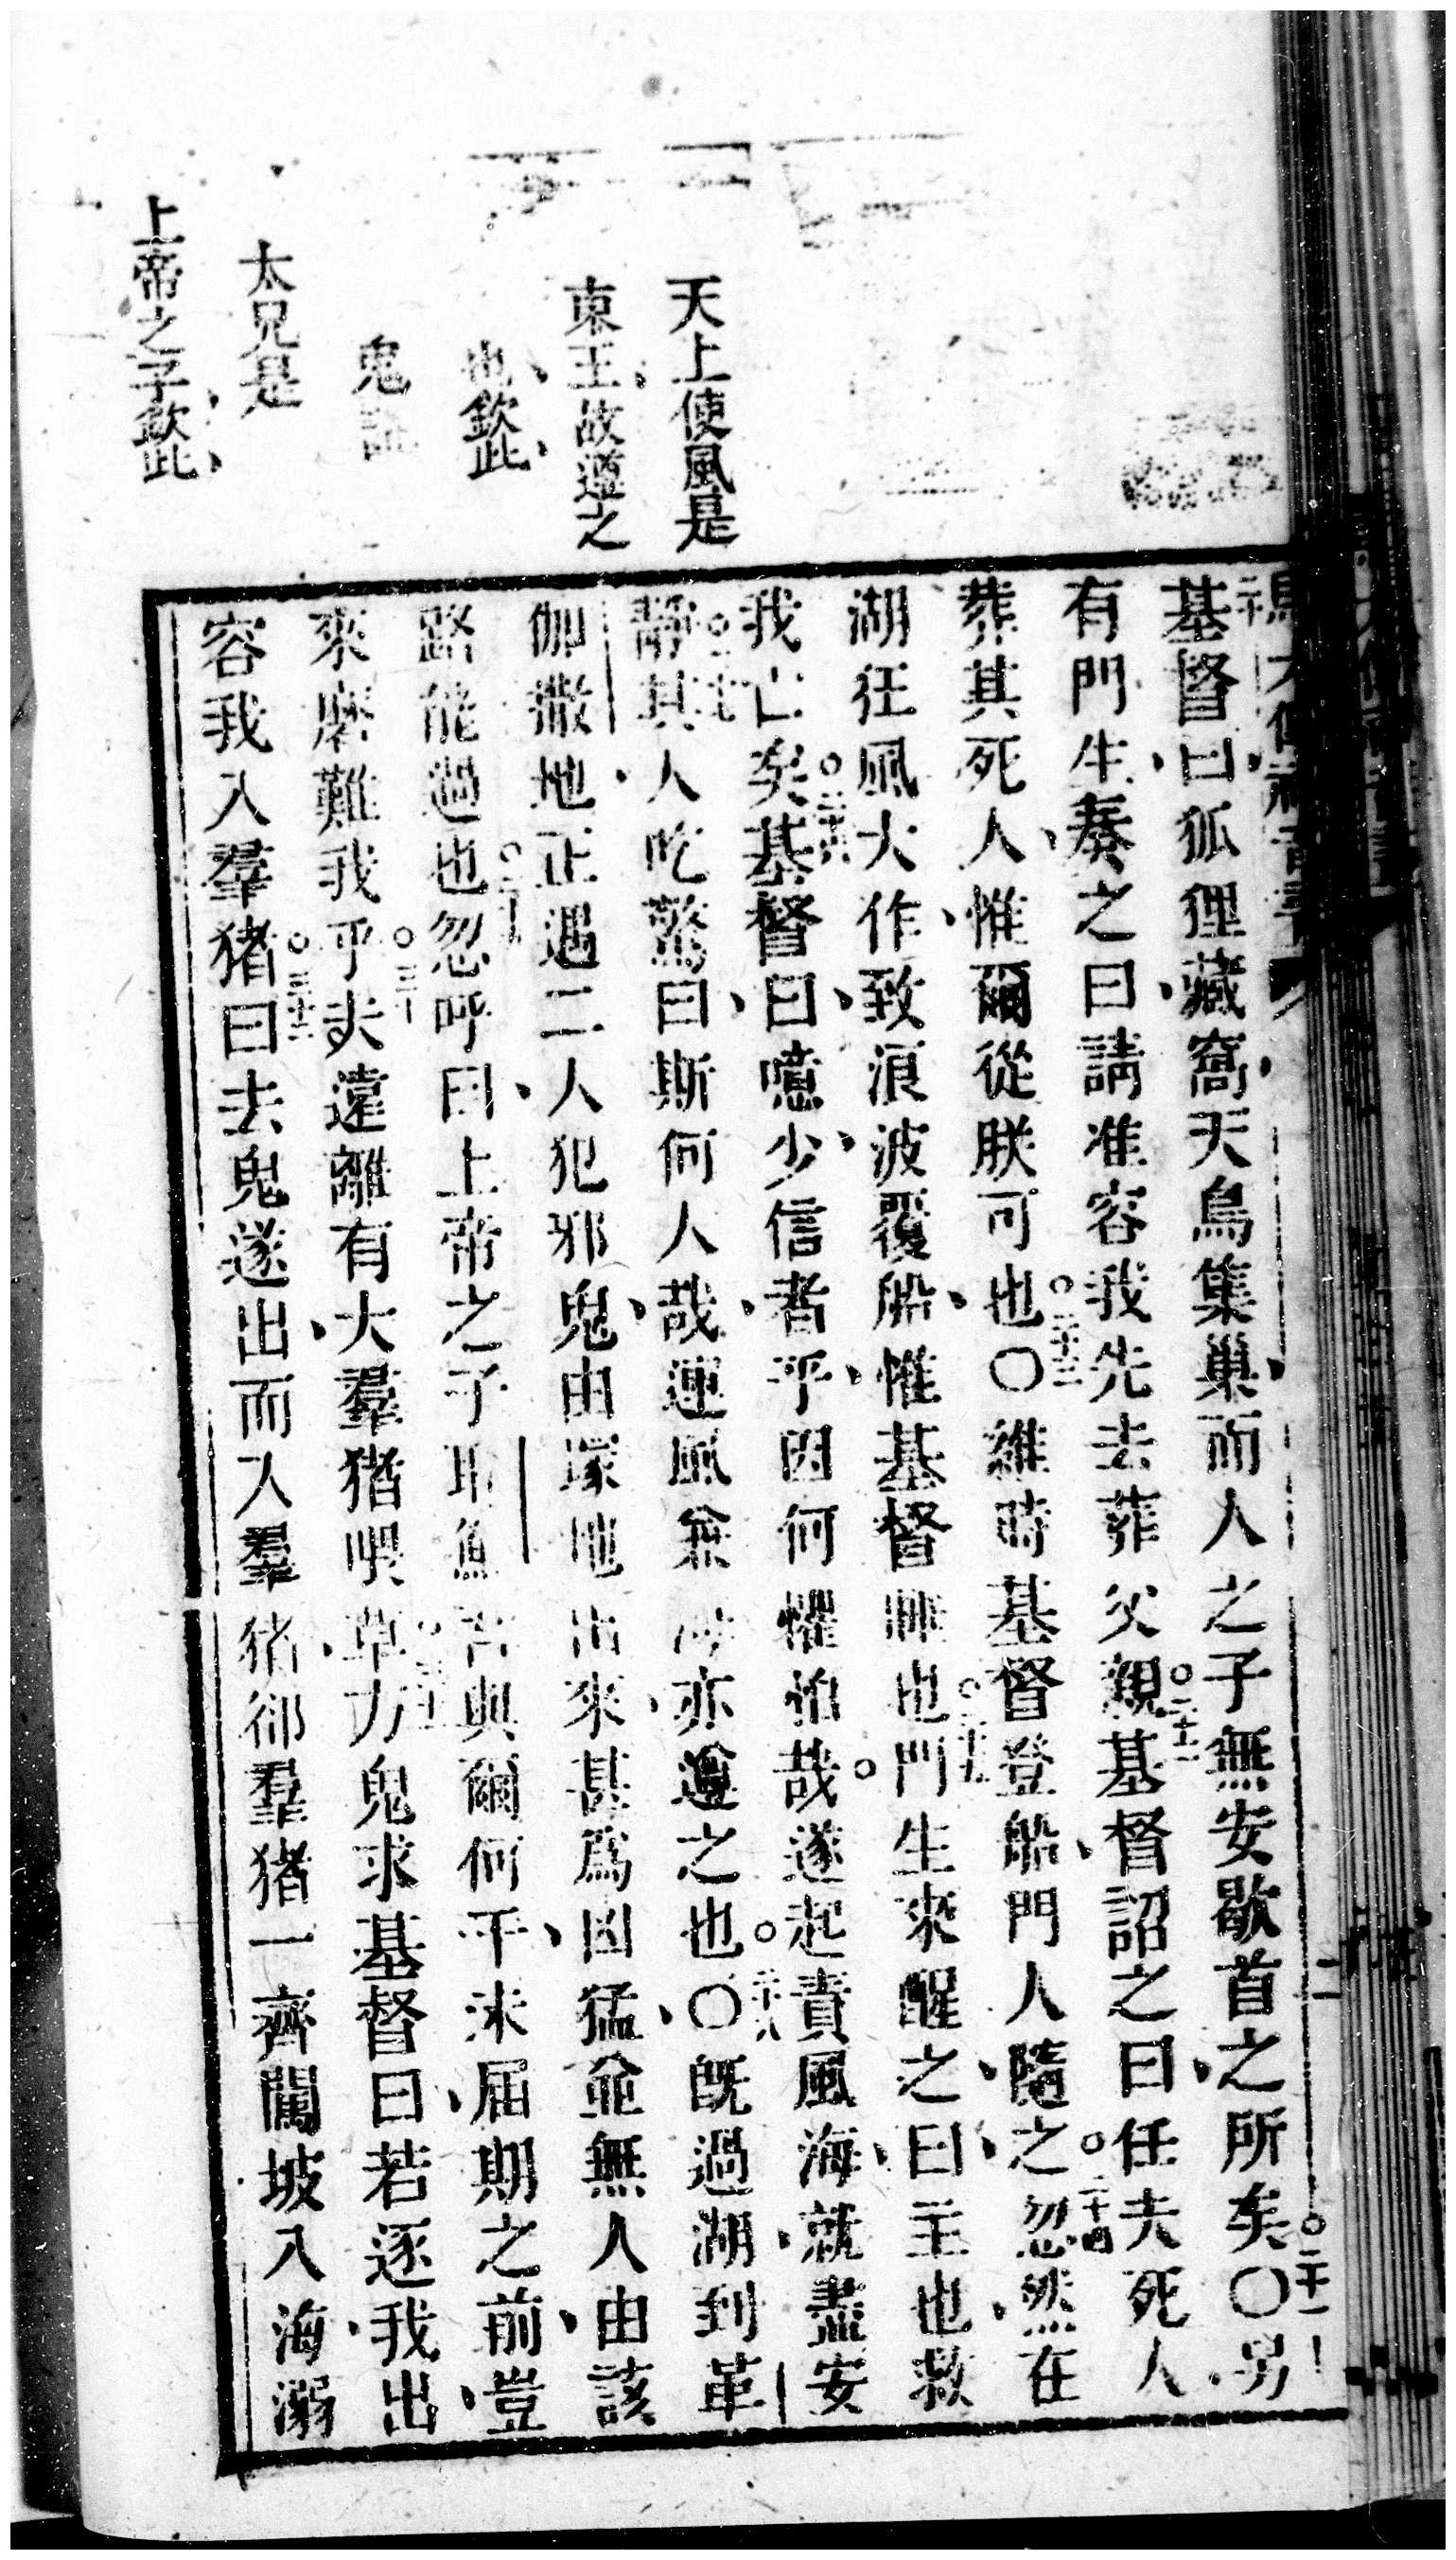 天上使風是
東王故遵之
也欽此
鬼話
太兄是
上帝之子欽此
基督曰、狐狸藏窩、天鳥集巢、而人之子無安歇首之所矣。〇另
二十一
有門生、奏之曰、請准容我先去葬父親。基督詔之曰、任夫死人
二十二
葬其死人、惟爾從朕可也。〇維時基督登船、門人隨之。忽然在
二十三 二十四
湖狂風大作、致浪波覆船、惟基督睡也。門生來醒之、曰、主也、救
二十五
我亡矣。基督曰、噫、少信者乎、因何懼怕哉。遂起責風海、就盡安
二十六
靜。其人吃驚曰、斯何人哉、連風兼海亦遵之也。〇旣過湖、到革
二十七 二十八
伽撒地、正遇二人犯邪鬼、由塚地出來、甚爲凶猛、並無人由該
路能過也。忽呼曰、上帝之子耶穌、吾與爾何干、未屆期之前、豈
二十九
來磨難我乎。夫遠離有大羣猪喂草。鬼求基督曰、若逐我出、
三十 三十一
容我入羣猪。曰、去、鬼遂出、而入羣猪、卻羣猪一齊闖坡入海溺
三十二